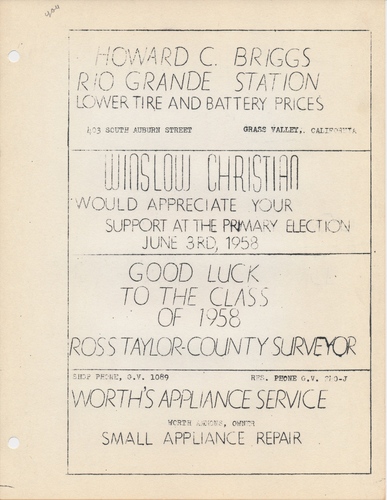 HOWARD C. BRIGGS
RIO GRANDE STATION
LOWER TIRE AND BATTERY PRICES
403 SOUTH AUBURN STREET GRASS VALLEY, CALIFORNIA
WINSLOW CHRISTIAN
WOULD APPRECIATE YOUR
SUPPORT AT THE PRIMARY ELECTION
JUNE 3RD, 1958
GOOD LUCK
TO THE CLASS
OF 1958
ROSS TAYLOR-COUNTY SURVEYOR
SHOP PHONE, G.V. 1089 RES. PHONE G.V.
WORTH'S APPLIANCE SERVICE
WORTH OWNER
SMALL APPLIANCE REPAIR